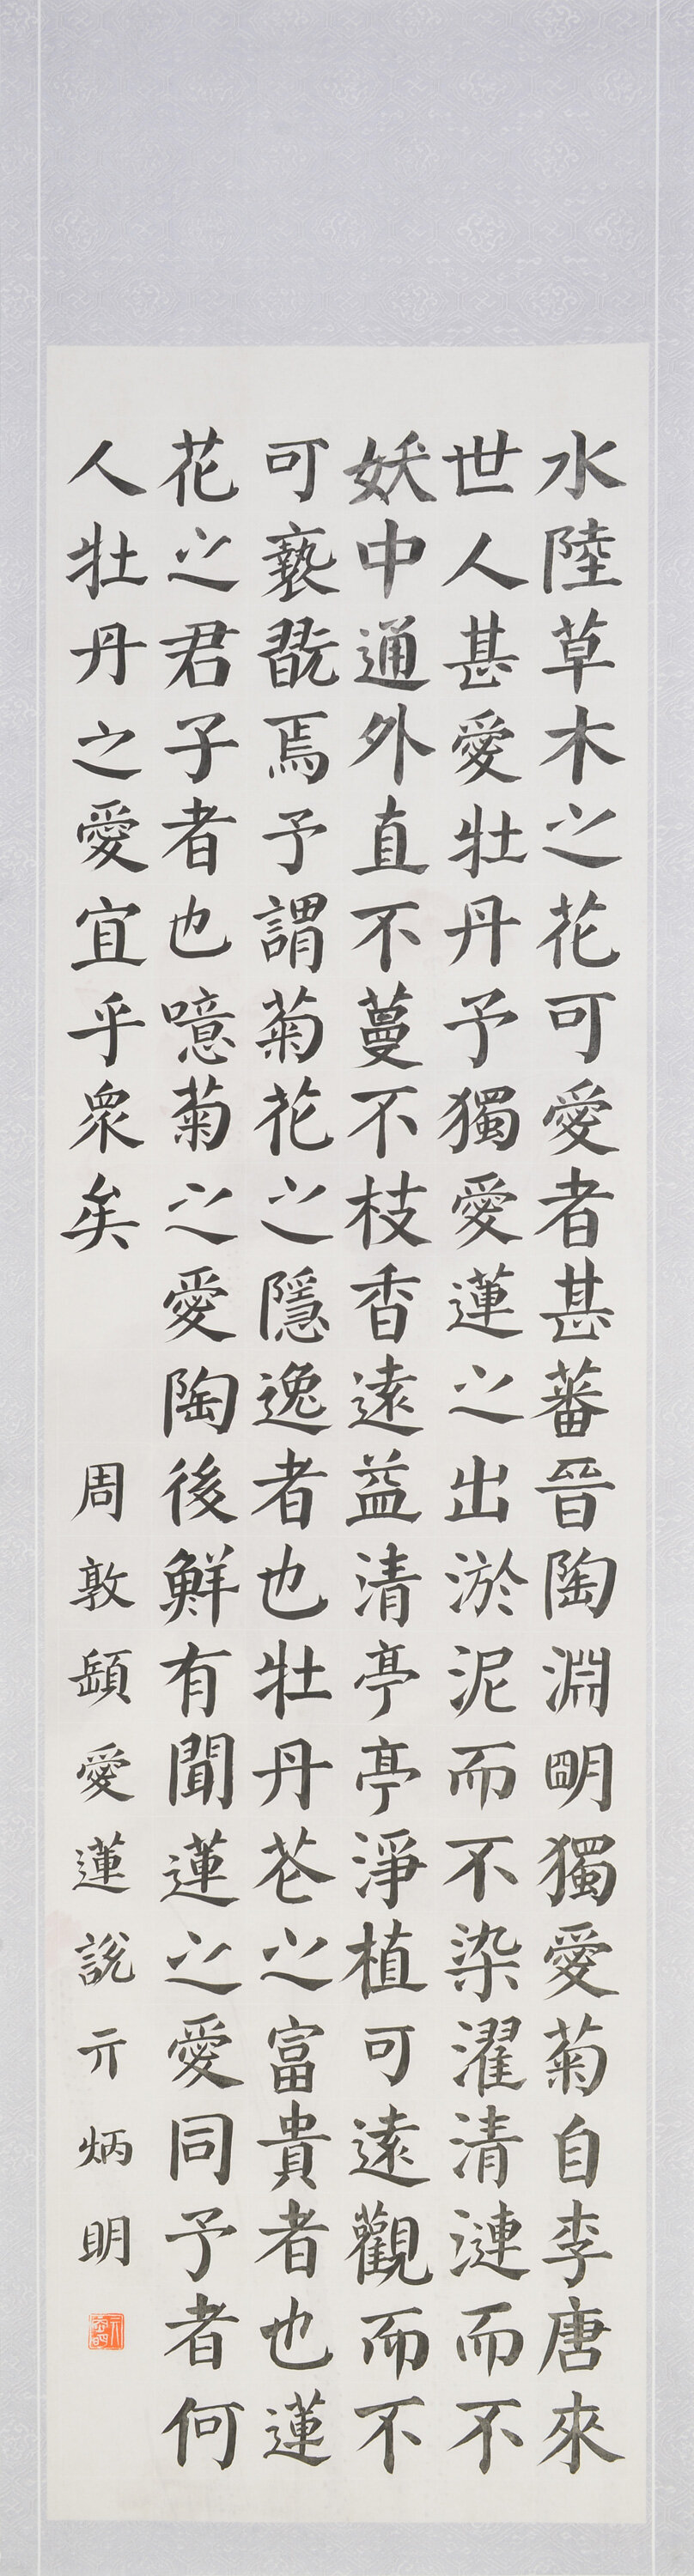 水陸草木之花可愛者甚蕃晉陶淵朙獨愛菊自李唐來
世人甚愛牡丹予獨愛蓮之出淤泥而不染濯清漣而不
妖中通外直不蔓不枝香遠益清亭亭淨植可遠觀而不
可褻翫焉予謂菊花之隱逸者也牡丹芲之富貴者也蓮
花之君子者也噫菊之愛陶後鮮有聞蓮之愛同予者何
人牡丹之愛宜乎衆矣 周敦頤愛蓮說亓炳明